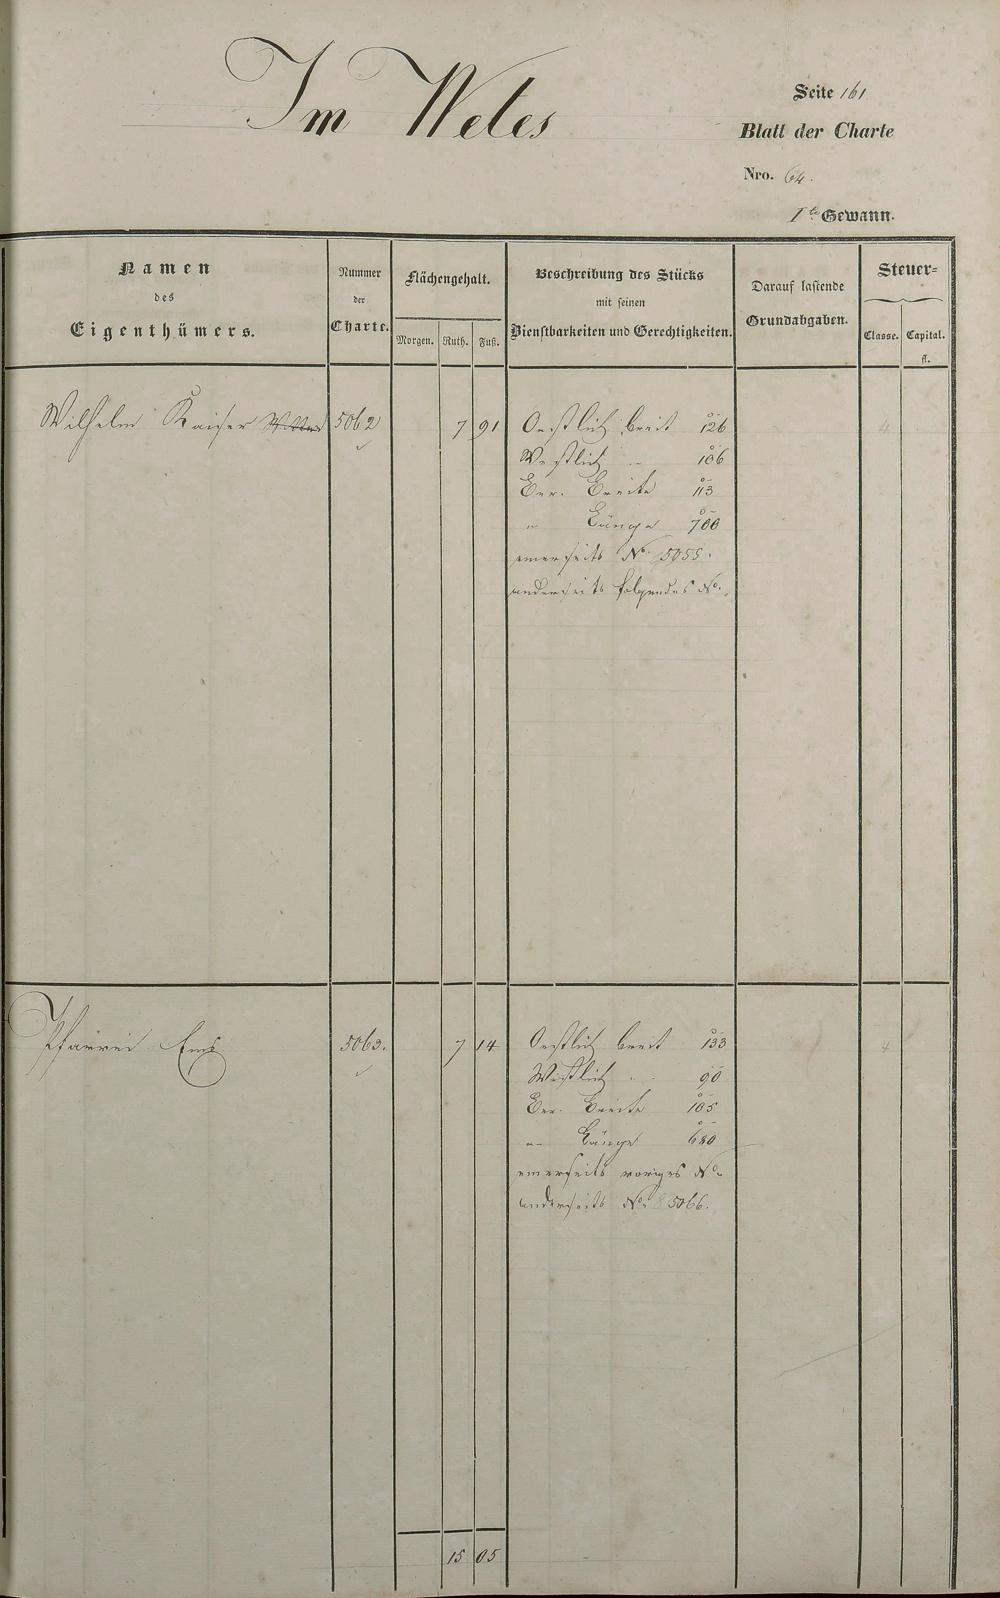 Im Weles
Seite 161
Blatt der Charte
Nro. 64.
1te Gewann.
Namen
des
Eigenthümers.
Nummer
der
Charte.
Flächengehalt.
Morgen. Ruth. Fuß.
Beschreibung des Stücks
mit seinen
Dienstbarkeiten und Gerechtigkeiten.
Darauf lastende
Grundabgaben.
Steuer-
Classe. Capital.
fl.
Wilhelm Kaiser 5062 7 91 Oestlich breit 126 4
Westlich " 106
Ber. Breite 113
" Länge 700
einerseits No. 5055.
anderseits folgendes No.
Pfarrei Ems 5063. 7 14 Oestlich breit 133 4
Westlich " 90
Ber. Breite 105
" Länge 680
einerseits voriges No.
anderseits No. 5066.
15 05